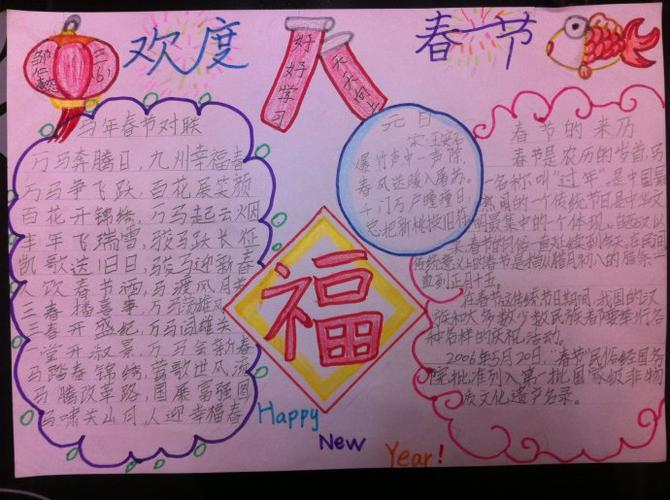 欢度
春节
好好学习
天天向上
三(6)
马年春节对联
万马奔腾日,九州幸福春
万马争飞跃,百花展笑颜
百花开锦绣,万马起云烟
丰年飞瑞雪,骏马跃长征
凯歌送旧日,骏马迎新春
人欢春节酒,马渡风月
三春播喜事,万马
三春开盛纪,万马闯雄关
堂开淑景,万马会新春
马踏春锦绣,莺歌世风流
马腾改革路,国展富强图
马啸关山月,人迎幸福春
元日
宋:王安石
爆竹声中一声除,
春风送暖入屠苏。
千门万户曈曈日,
总把新桃换旧符
福
Happy
New
Year!
春节的来历
春节是农历的岁首,另
一名称叫"过年".是中国最
的一个传统节日是中华文
明最集中的一个体现。
春节的习俗一直延续到今天,在民间
传统意义上的春节是指从腊月初八的腊祭
直到正月十五。
在春节这传统节日期间,我国的汉
族和大多数少数民族都要举行各
种各样的庆祝活动。
2006年5月20日,"春节"民俗经国务
院批准列入第一批国家级非物
质文化遗产名录。